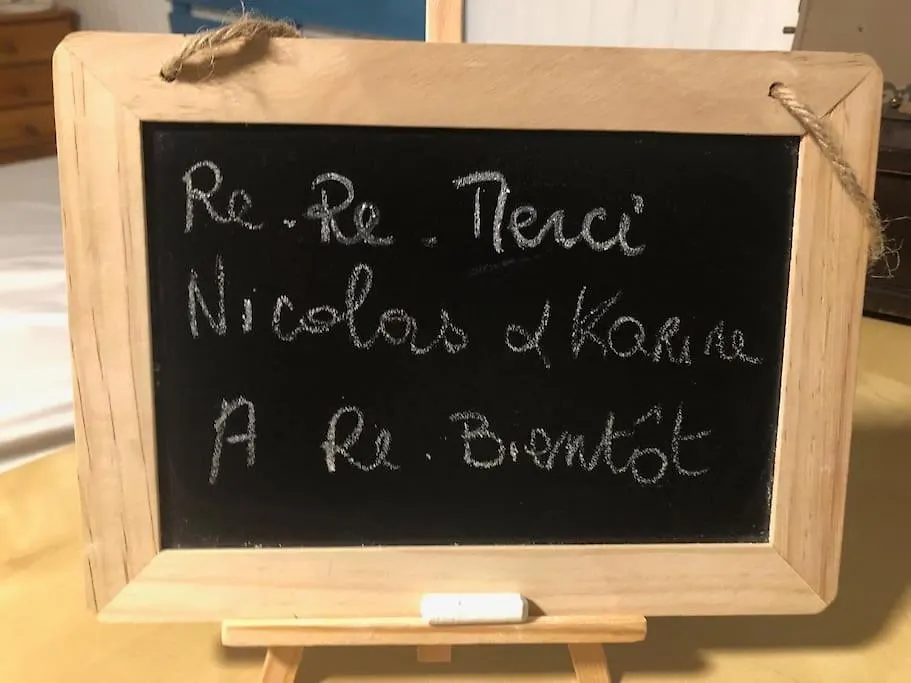 Re.Re.Merci
Nicolas & Karine
A Re.Bientôt